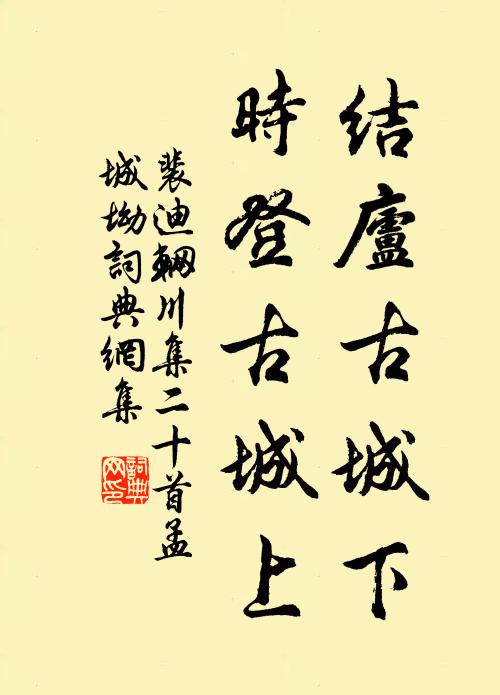 結廬古城下
時登古城上
裴迪輞川集二十首孟
城坳詞典網集
詞典
网印